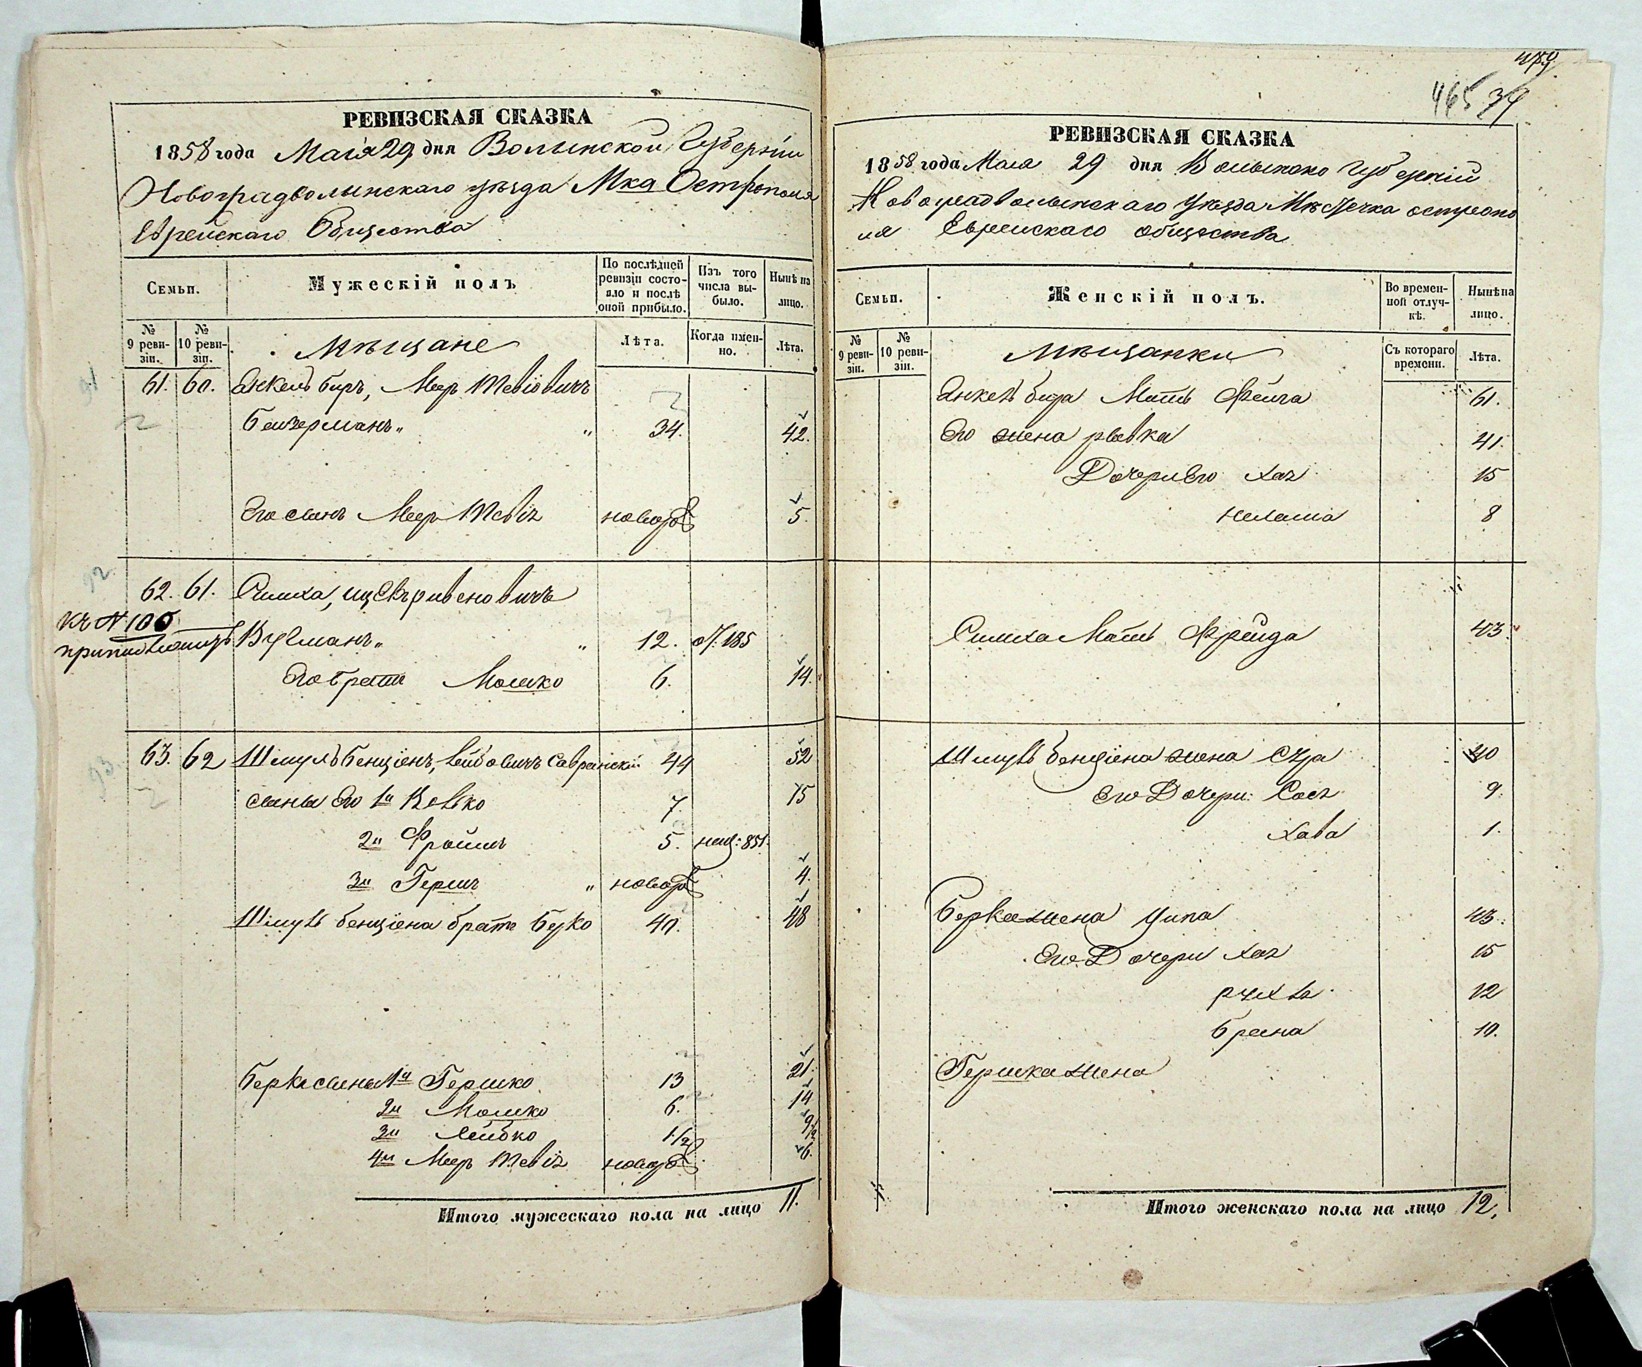 РЕВИЗСКАЯ СКАЗКА
1858 года Мая 29 дня Волынской Губернии
Новоградволынскаго уѣзда Мка Острополя
Еврейскаго Общества
Семьи.
Мужескій полъ
По послѣдней ревизіи состояло и послѣ оной прибыло.
Изъ того числа выбыло.
Нынѣ на лицо.
№ 9 ревизіи.
№ 10 ревизіи.
Мѣщане
Лѣта.
Когда именно.
Лѣта.
61. 60. Янкель беръ, Меер Тевіовичъ
Бензерманъ „ „ 34. 42.
Его сынъ Меер Тевіе новорож 5.
62. 61. Симха,
къ № 100
Вугманъ „ „ 12. 185
Его братъ Мошко 6. 14.
63. 62 Шмуль Бенціенъ, Лейбовичъ Савранскій 44 52
сыны Его 1й Велько 7. 15
2й Фроимъ 5. 851.
3й Гершъ „ новорож 4.
Шмуль бенціена братъ Берко 40. 48
Берка сыны 1й Гершко 13 21.
2й Мошко 6. 14
3й Лейбко 1/2 9
4й Меер Тевіе новорож 6.
Итого мужескаго пола на лицо 11.
465 39
РЕВИЗСКАЯ СКАЗКА
1858 года Мая 29 дня Волынско Губерніи
Новоградволынскаго Уѣзда Мѣстечка остропо
ля Еврейскаго общества
Семьи.
Женскій полъ.
Во временной отлучкѣ.
Нынѣ на лицо.
№ 9 ревизіи.
№ 10 ревизіи.
Мѣщанки
Съ котораго времени.
Лѣта.
Янкель бера Мать Фейга 61.
Его жена ривка 41.
Дочери Его Хая 15
8
Симха Мать Фрейда 43.
Шмуль бенціена жена Сура 40
Его Дочери: Хася 9
Хава 1.
Берка жена Ципа 43.
Его Дочери Хая 15
рухля 12
Брейна 10.
Гершка жена
Итого женскаго пола на лицо 12.